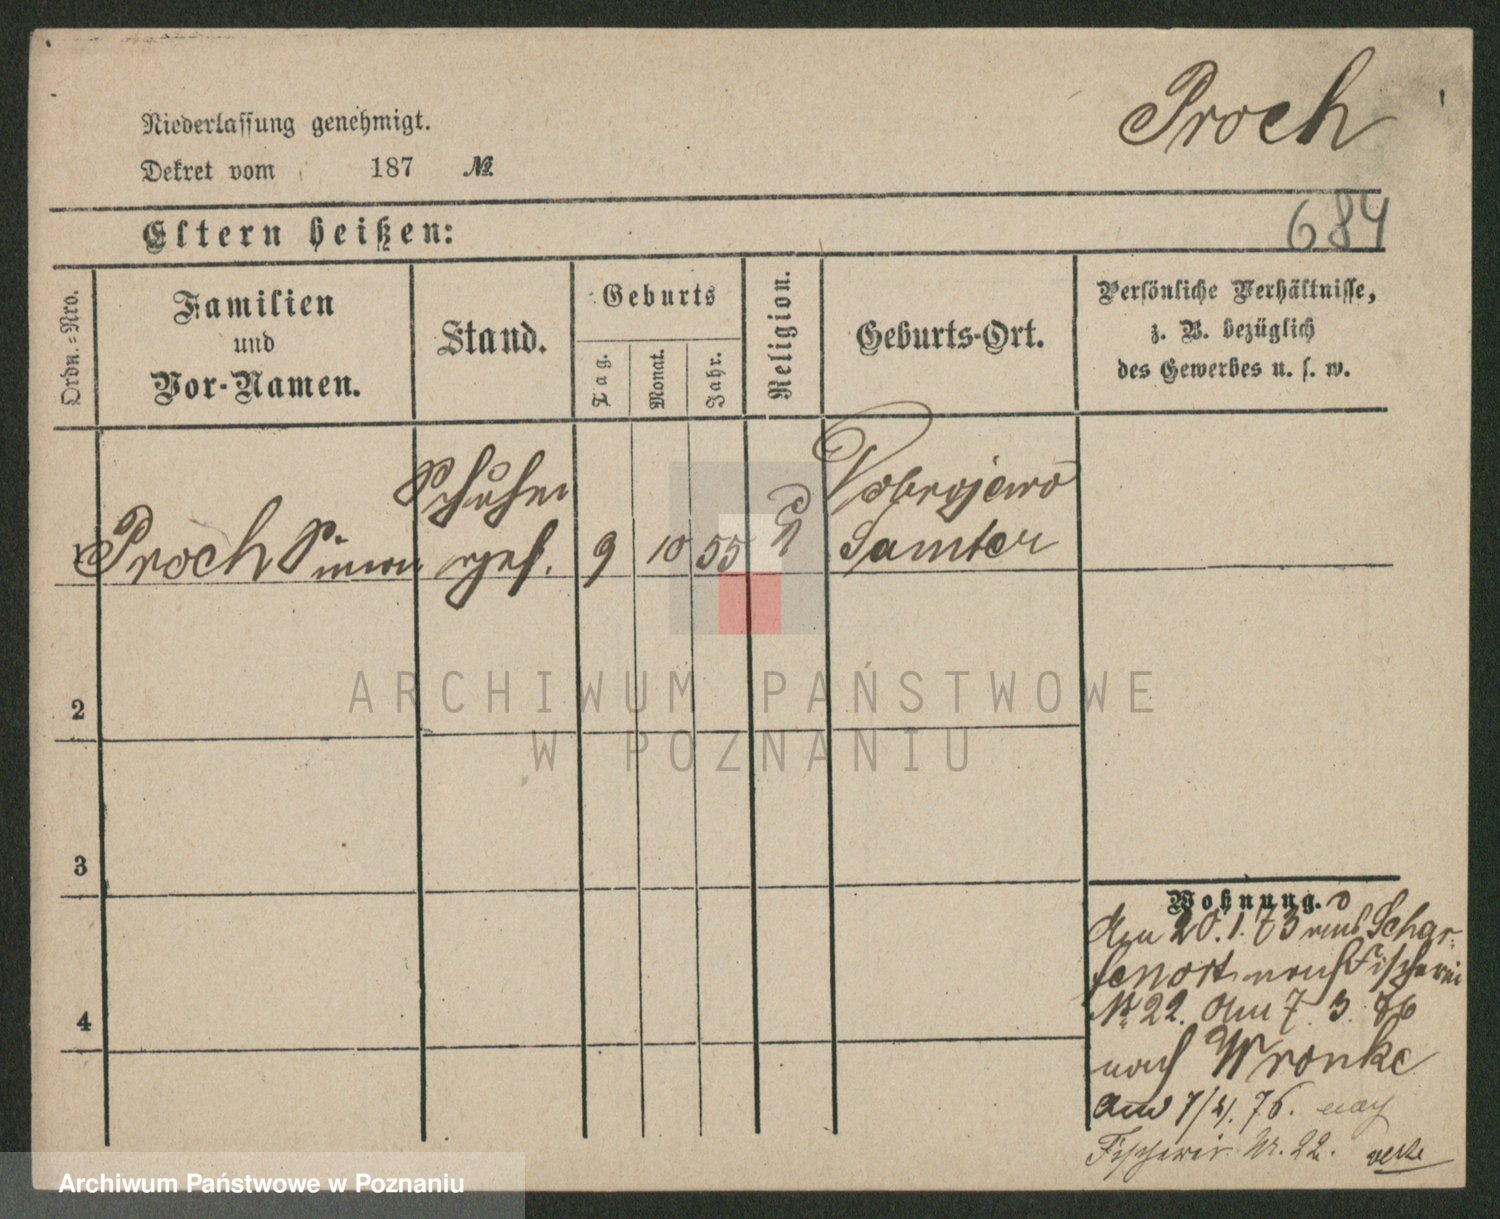 Proch
Niederlassung genehmigt.
Dekret vom 187 №
684
Eltern heißen:
Ordn.-Nro.
Familien
und
Vor-Namen.
Stand.
Geburts
Tag.
Monat.
Jahr.
Religion.
Geburts-Ort.
Persönliche Verhältnisse,
z. B. bezüglich
des Gewerbes u. s. w.
1 Proch Simon
Schuhm
gef. 9 10 55
Dobrojewo
Samter
2
3
4
Wohnung.
Am 20.1.73 aus Schar-
fenort nach Fischerei
Nr 22. Am 7. 3. 76
nach Wronke
am 7/4. 76. nach
Fischerei Nr. 22.
ARCHIWUM PAŃSTWOWE
W POZNANIU
Archiwum Państwowe w Poznaniu